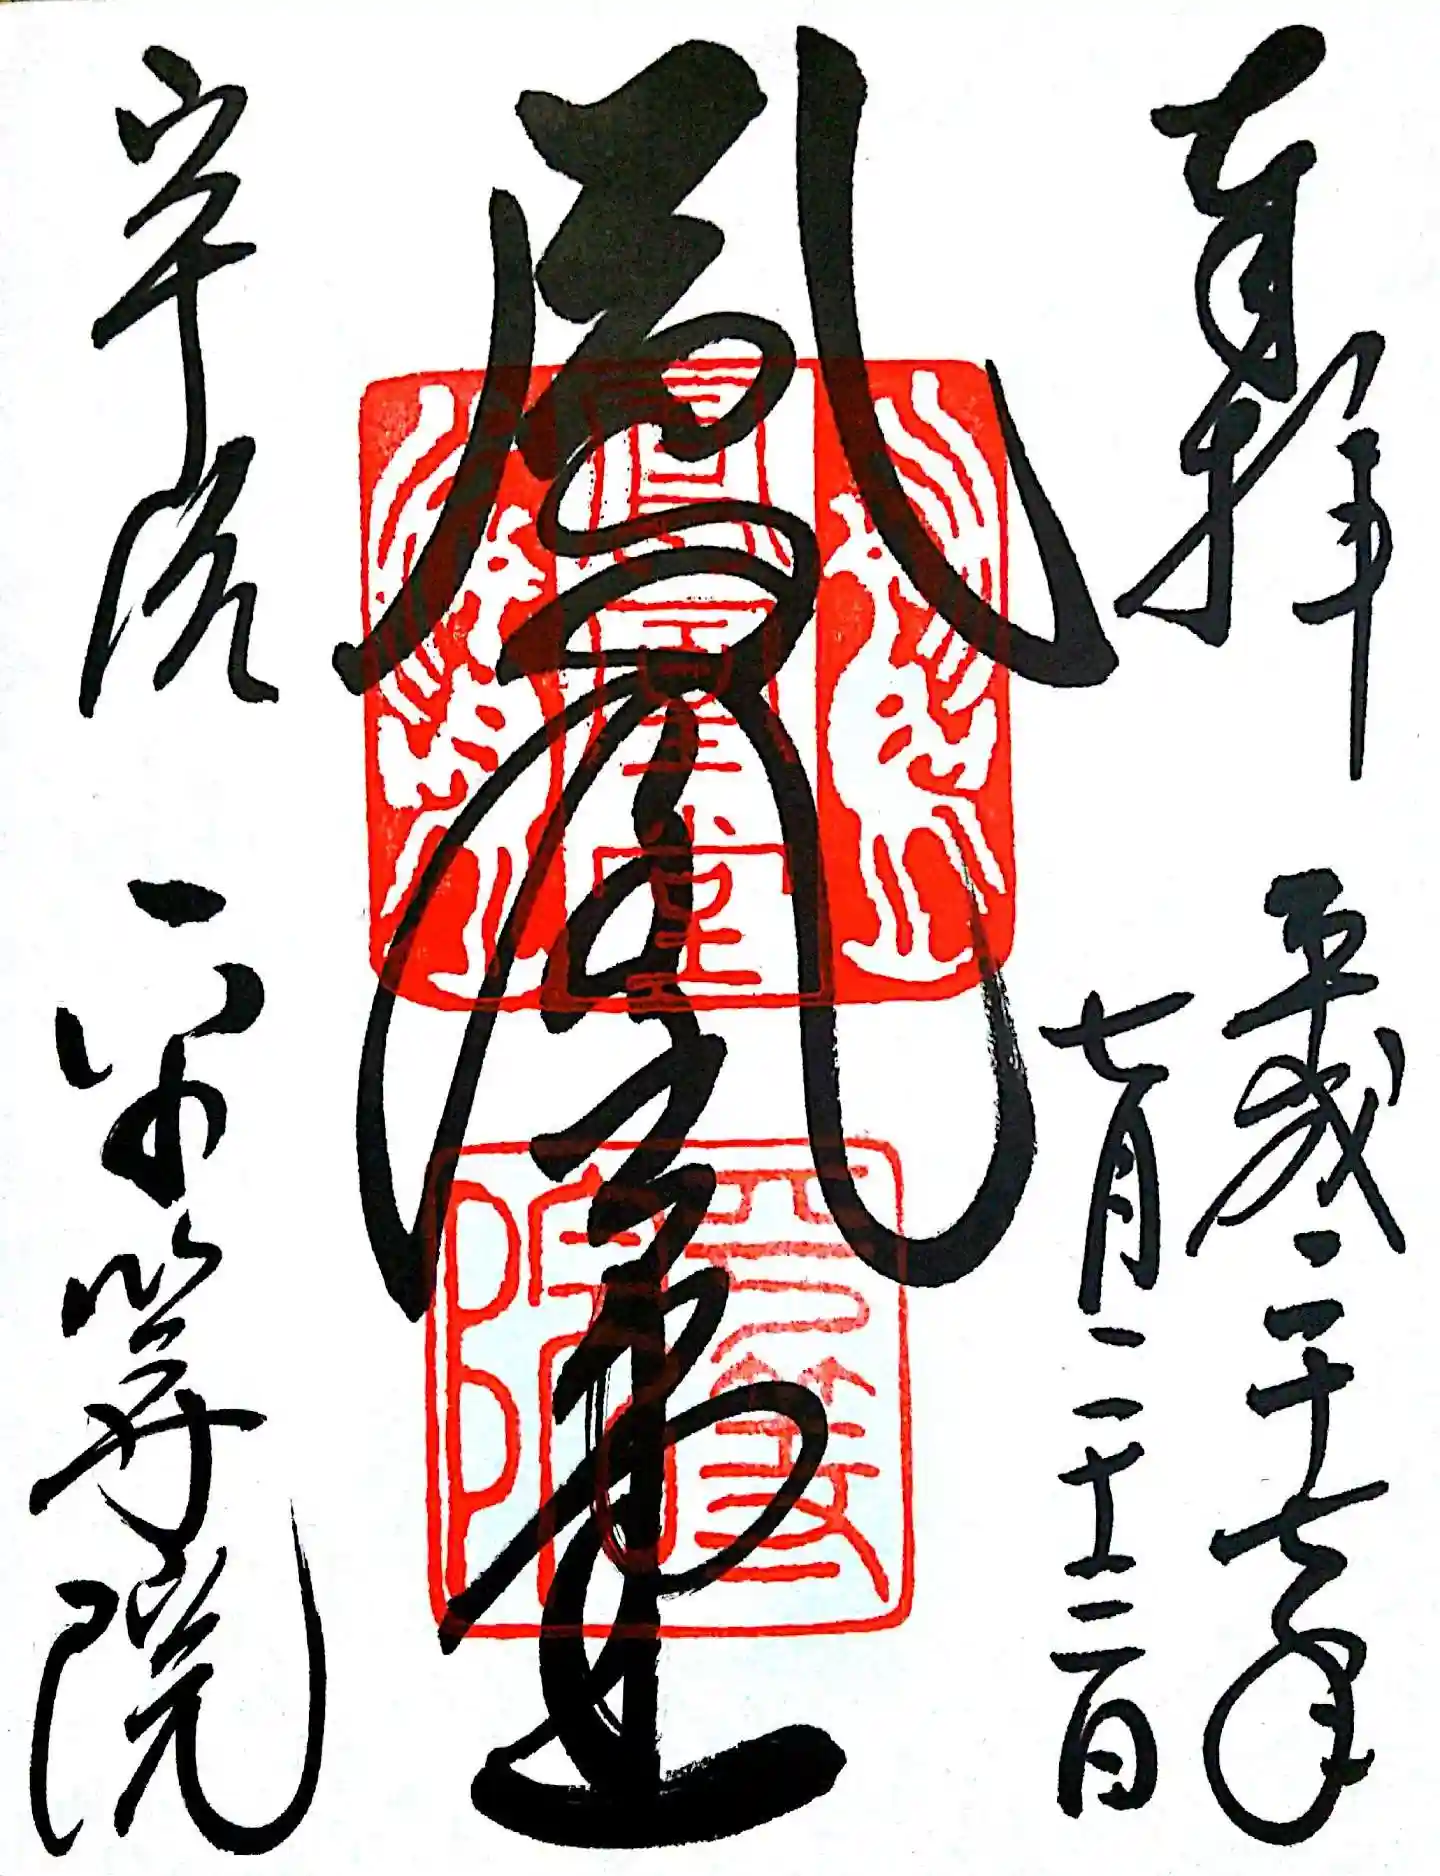 奉拝
平成二十七年
七月二十三日
鳳凰堂
鳳凰堂
平等院
宇治
平等院